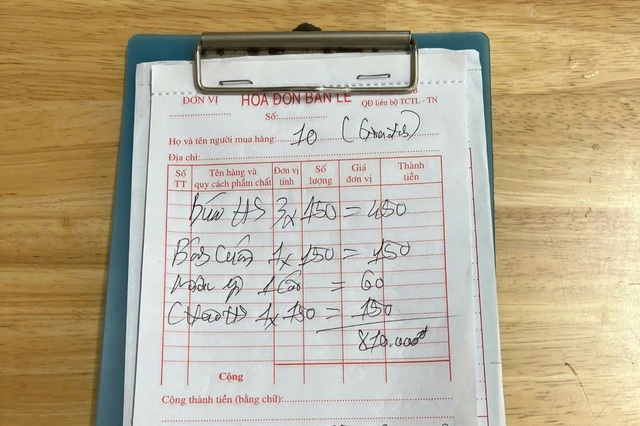 ĐƠN VỊ HÓA ĐƠN BÁN LẺ QĐ liên bộ TCTL - TN
Số:
Họ và tên người mua hàng: 10
Địa chỉ:
Số TT Tên hàng và quy cách phẩm chất Đơn vị tính Số lượng Giá đơn vị Thành tiền
Bún HS 3 x 150 = 450
Bánh Cuốn 1 x 150 = 150
1 = 60
Cháo HS 1 x 150 = 150
810.000đ
Cộng
Cộng thành tiền (bằng chữ):